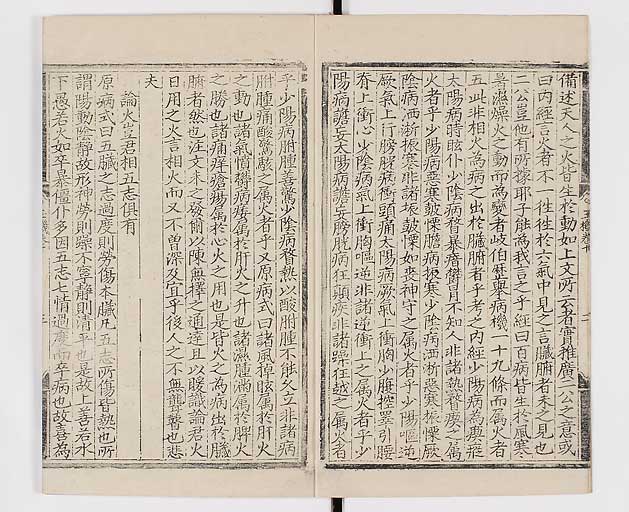 備述天人之火皆生於動如上文所云者實推廣二公之意或
曰內經言火者不一徃徃於六氣中見之言臟腑者未之見也
二公豈他有所據耶子能為我言之乎經曰百病皆生於風寒
暑濕燥火之動而為變者岐伯歴舉病機一十九條而属火者
五此非相火為病之出於臟腑者乎考之內經少陽病為瘈瘲
太陽病時眩仆少陰病瞀暴瘖欝冒不知人非諸熱瞀瘈之属
火者乎少陽病惡寒皷慄膽病振寒少陰病洒淅惡寒振慄厥
陰病洒淅振寒非諸禁皷慄如喪神守之属火者乎少陽嘔逆
厥氣上行膀胱病衝頭痛太陽病厥氣上衝胸少腹控睪引腰
脊上衝心少陰病氣上衝胸嘔逆非諸逆衝上之属火者乎少
陽病譫妄太陽病譫妄膀胱病狂顛疾非諸躁狂越之属火者
乎少陽病胕腫善驚少陰病瞀熱以酸胕腫不能久立非諸病
胕腫痛酸驚駭之属火者乎又原病式曰諸風掉眩属於肝火
之動也諸氣憤欝病痿属於肺火之升也諸濕腫滿属於脾火
之勝也諸痛痒瘡瘍属於心火之用也是皆火之為病出於臟
腑者然也注文未之發爾以陳無擇之通達且以暖識論君火
日用之火言相火而又不曽深及宜乎後人之不無聾瞽也悲
夫
論火豈君相五志俱有
原病式曰五臟之志過度則勞傷本臟凡五志所傷皆熱也所
謂陽動陰靜故形神勞則躁不寧靜則清平也是故上善若水
下愚若火如卒暴僵仆多因五志七情過度而卒病也故善為